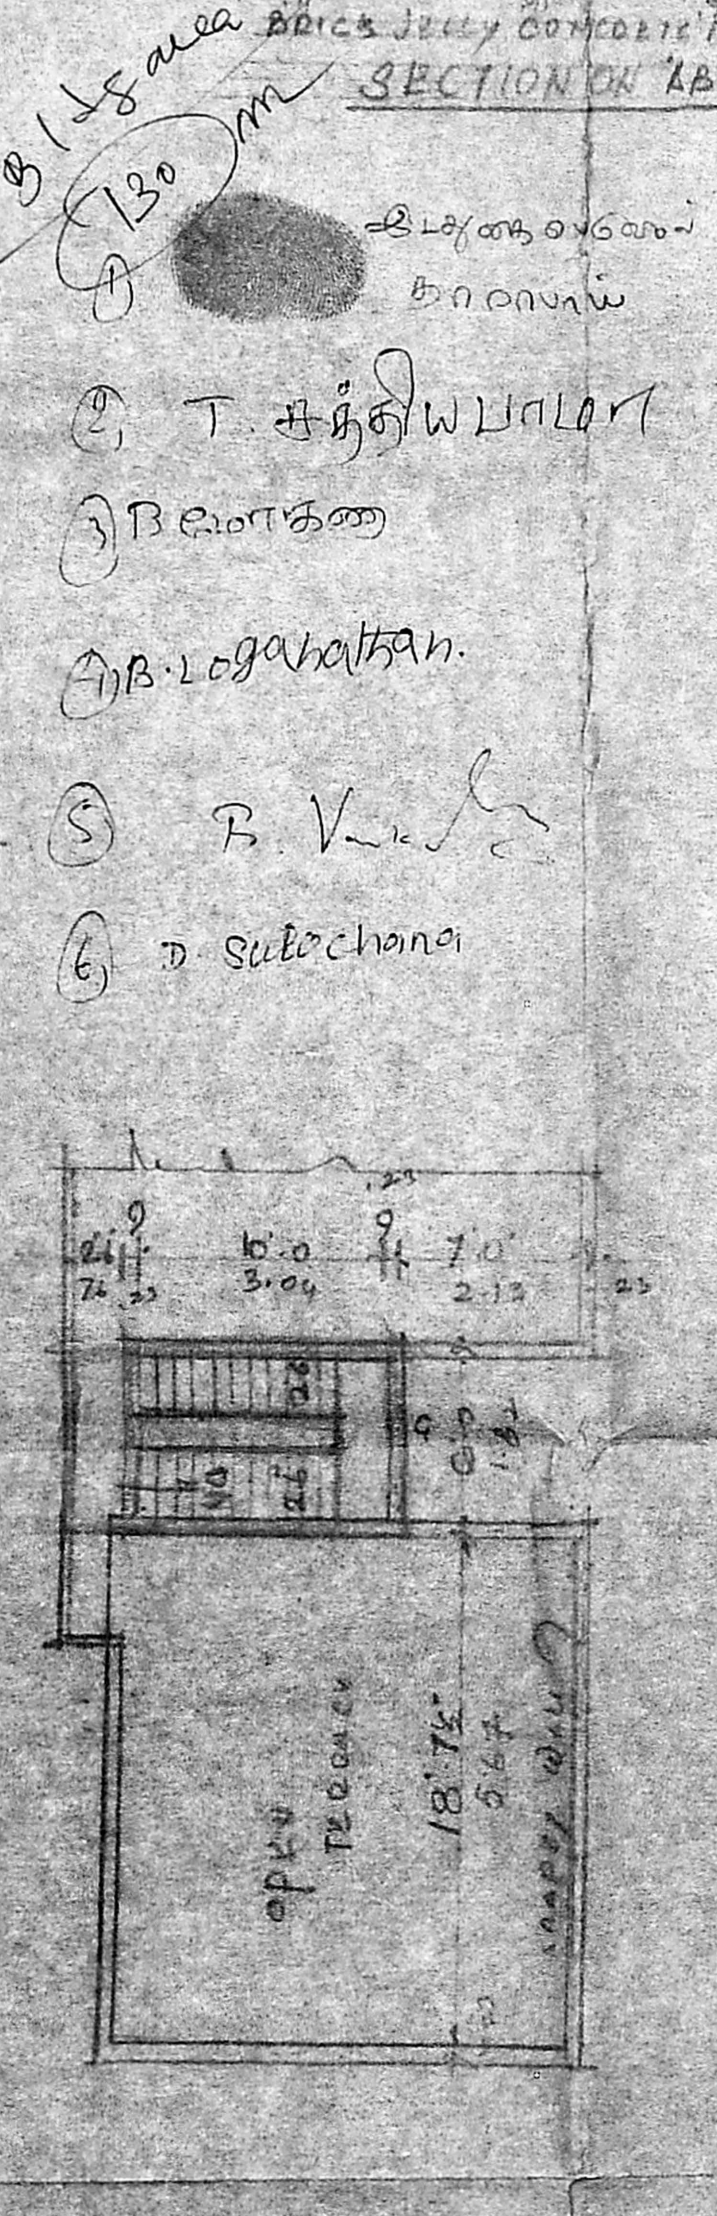 BRICK JELLY CONCRETE
SECTION ON 'AB
Bldg area
130 m
①
இடதுகை பெருவிரல்
தாராபாய்
② T. சத்தியபாமா
③ B மோகனா
④ B. Loganathan.
⑤ B.
⑥ D Sulochana
.23
9 9
2'6 10'.0 7'.0"
76 .23 3.04 2.13 23
26
UP 26
9
6'.0
1.82
OPEN
TERRACE
18'.7½"
5.67
PARAPET WALL
.23